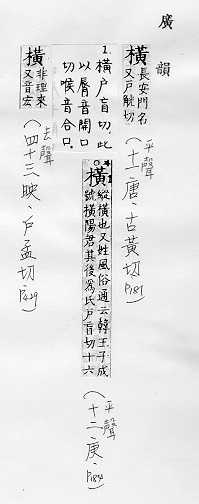 廣韻
橫 長安門名又戶觥切
(平聲 十一唐·古黃切 P181)
1.橫戶盲切,此以唇音開口切喉音合口。
橫 縱橫也又姓風俗通云韓王子成號橫陽君其後爲氏戶盲切十六
(平聲 十二·庚·P184)
橫 非理來又音宏
(去聲 四十三映·戶孟切 P429)